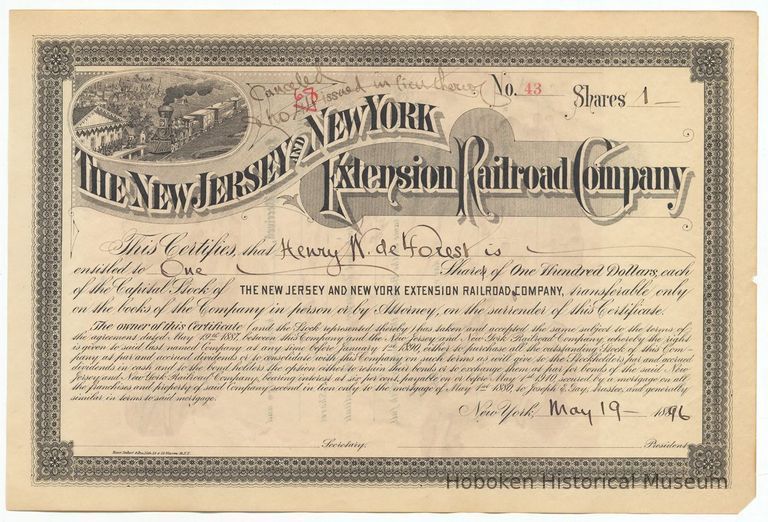 Canceled
No. 43
& No. issued in lieu thereof
Shares 1
THE NEW JERSEY AND NEW YORK
Extension Railroad Company
This Certifies, that Henry W. de Forest is
entitled to One Shares of One Hundred Dollars, each
of the Capital Stock of THE NEW JERSEY AND NEW YORK EXTENSION RAILROAD COMPANY, transferable only
on the books of the Company in person or by Attorney, on the surrender of this Certificate.
The owner of this Certificate (and the Stock represented thereby) has taken and accepted the same subject to the terms of
the agreement dated May 19th 1887, between this Company and the New Jersey and New York Railroad Company, whereby the right
is given to said last named Company at any time before January 1st 1890, either to purchase all the outstanding Stock of this Com-
pany at par and accrued dividends or to consolidate with this Company on such terms as will give to the Stockholders par and accrued
dividends in cash and to the bond holders the option either to retain their bonds or to exchange them at par for bonds of the said New
Jersey and New York Railroad Company, bearing interest at six per cent, payable on or before May 1st 1910, secured by a mortgage on all
the franchises and property of said Company second in lien only to the mortgage of May 1st 1880, to Joseph E. Gay, trustee, and generally
similar in terms to said mortgage.
New York, May 19 1896
Secretary. President.
Hoboken Historical Museum